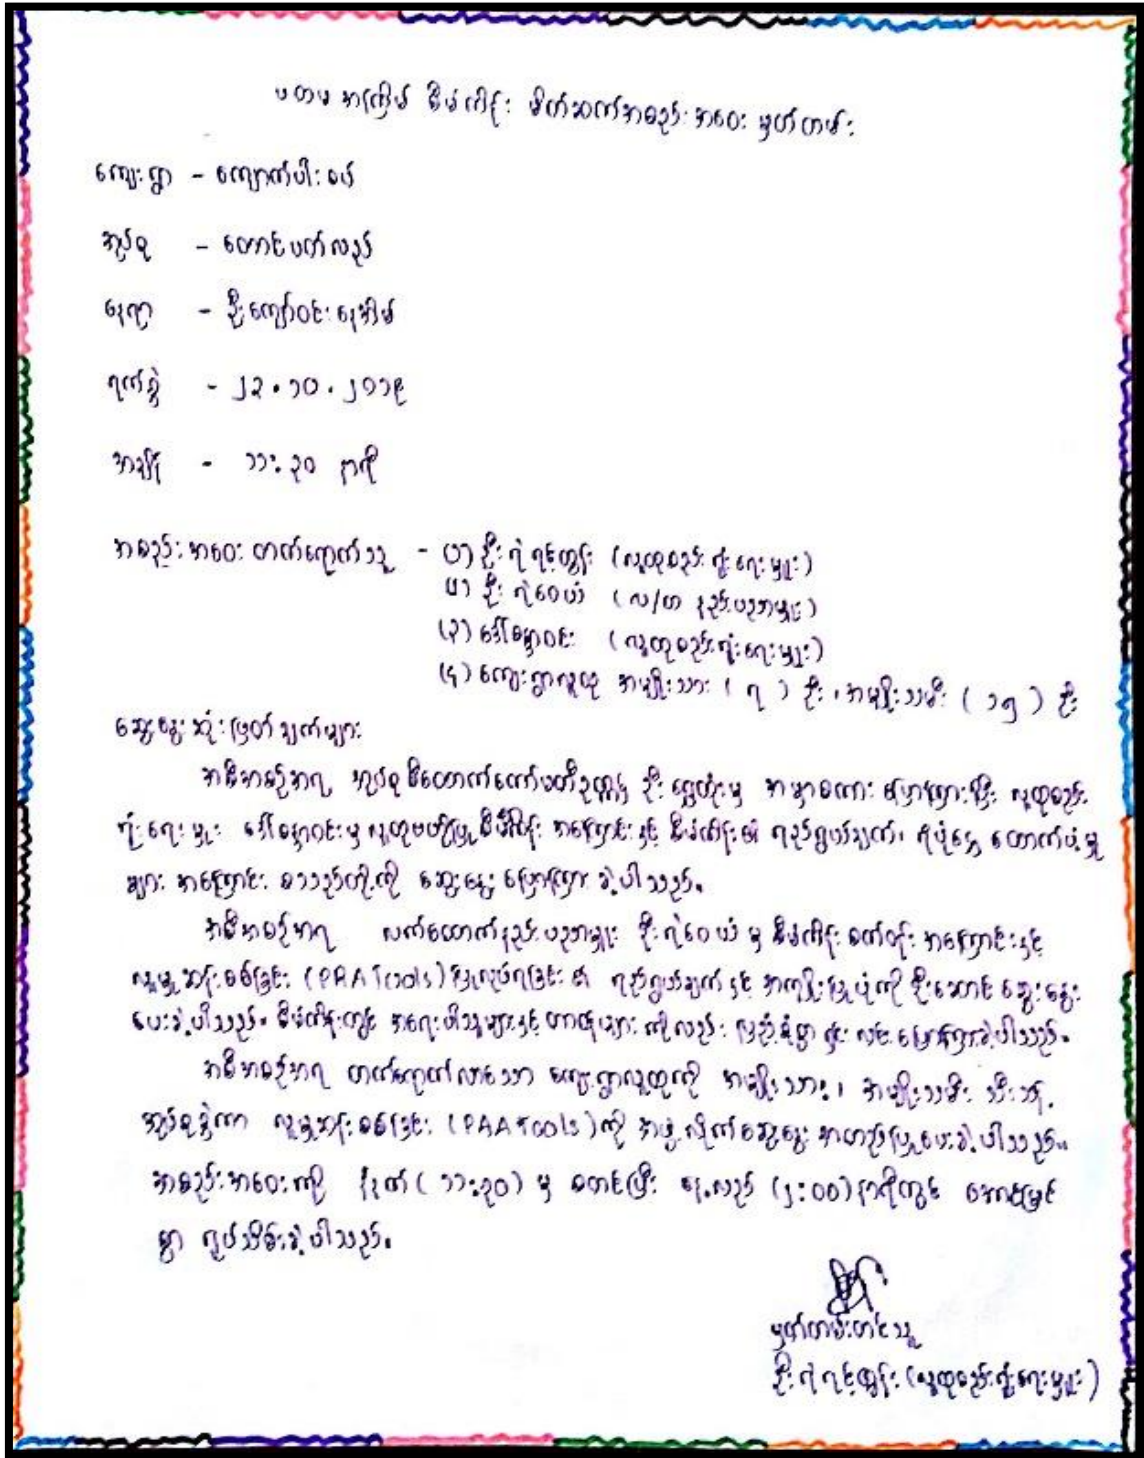 ပထမ အကြိမ် စီမံကိန်း မိတ်ဆက်အစည်းအဝေး မှတ်တမ်း
ကျေးရွာ - ကျောက်ပါးစပ်
အုပ်စု - တောင်ပတ်လည်
နေရာ - ဦးကျော်ဝင်းနေအိမ်
ရက်စွဲ - ၂၃.၁၀.၂၁၁၉
အချိန် - ၁၁:၃၀ နာရီ
အစည်းအဝေး တက်ရောက်သူ - (၁) ဦးရဲရင့်ထွန်း (လူထုစည်းရုံးရေးမှူး)
(၂) ဦးရဲဝေယံ (လ/ထ နည်းပညာမှူး)
(၃) ဒေါ်မော်ဝင်း (လူထုစည်းရုံးရေးမှူး)
(၄) ကျေးရွာလူထု အမျိုးသား ( ၇ ) ဦး ၊ အမျိုးသမီး ( ၁၅ ) ဦး
ဆွေးနွေးဆုံးဖြတ်ချက်များ
အစီအစဉ်အရ အုပ်စုစီထောက်ကော်မတီဥက္ကဋ္ဌ ဦးရွှေထိုးမှ အမှာစကား ပြောကြားပြီး လူထုစည်း
ရုံးရေးမှူး ဒေါ်မော်ဝင်းမှ လူထုဗဟိုပြုစီမံကိန်း အကြောင်းနှင့် စီမံကိန်း၏ ရည်ရွယ်ချက်၊ ရံပုံငွေ ထောက်ပံ့မှု
များ အကြောင်း စသည်တို့ကို ဆွေးနွေးပြောကြားခဲ့ပါသည်။
အစီအစဉ်အရ လက်ထောက်နည်းပညာမှူး ဦးရဲဝေယံမှ စီမံကိန်းစက်ဝန်း အကြောင်းနှင့်
လူမှုဆန်းစစ်ခြင်း (PAA Tools) ပြုလုပ်ရခြင်း၏ ရည်ရွယ်ချက်နှင့် အကျိုးပြုပုံကို ဦးဆောင်ဆွေးနွေး
ပေးခဲ့ပါသည်။ စီမံကိန်းတွင် အရေးပါသူများနှင့် တာဝန်များကိုလည်း ပြည့်စုံစွာ ရှင်းလင်းပြောကြားခဲ့ပါသည်။
အစီအစဉ်အရ တက်ရောက်လာသော ကျေးရွာလူထုကို အမျိုးသား၊ အမျိုးသမီး သီးသန့်
အုပ်စုခွဲကာ လူမှုဆန်းစစ်ခြင်း (PAA Tools) ကို အဖွဲ့လိုက်ဆွေးနွေး အတည်ပြုပေးခဲ့ပါသည်။
အစည်းအဝေးကို နံနက် (၁၁:၃၀) မှ စတင်ပြီး နေ့လည် (၂:၀၀) နာရီတွင် အောင်မြင်
စွာ ရုပ်သိမ်းခဲ့ပါသည်။
မှတ်တမ်းတင်သူ
ဦးရဲရင့်ထွန်း (လူထုစည်းရုံးရေးမှူး)